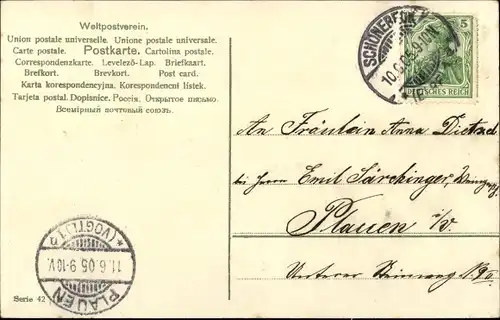 Weltpostverein.
Union postale universelle. Unione postale universale.
Carte postale. Postkarte. Cartolina postale.
Correspondenzkarte. Levelező-Lap. Briefkaart.
Brefkort. Brevkort. Post card.
Karta korespondencyjna. Korespondenční lístek.
Tarjeta postal. Dopisnice. Россiя. Открытое письмо.
Всемiрный почтовый союзъ.
10.6.05. 9-10 N.
5
DEUTSCHES REICH
An Fräulein Anna Dietzel
bei Herrn Emil Särchinger,
Plauen i/V.
Unterer Steinweg
PLAUEN
(VOGTL.)
11.6.05. 9-10 V.
Serie 42